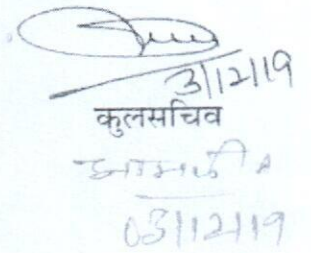 3/12/19
कुलसचिव
03/12/19